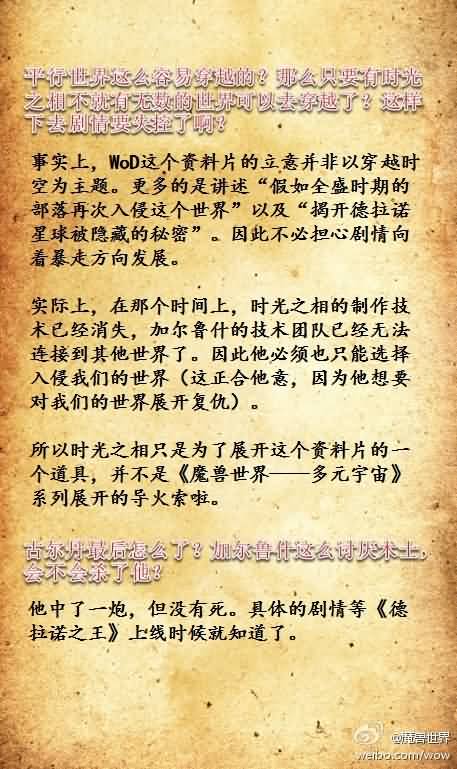 平行世界这么容易穿越的？那么只要有时光
之相不就有无数的世界可以去穿越了？这样
下去剧情要失控了啊？
事实上，WoD这个资料片的立意并非以穿越时
空为主题。更多的是讲述“假如全盛时期的
部落再次入侵这个世界”以及“揭开德拉诺
星球被隐藏的秘密”。因此不必担心剧情向
着暴走方向发展。
实际上，在那个时间上，时光之相的制作技
术已经消失，加尔鲁什的技术团队已经无法
连接到其他世界了。因此他必须也只能选择
入侵我们的世界（这正合他意，因为他想要
对我们的世界展开复仇）。
所以时光之相只是为了展开这个资料片的一
个道具，并不是《魔兽世界——多元宇宙》
系列展开的导火索啦。
古尔丹最后怎么了？加尔鲁什这么讨厌术士，
会不会杀了他？
他中了一炮，但没有死。具体的剧情等《德
拉诺之王》上线时候就知道了。
@魔兽世界
weibo.com/wow